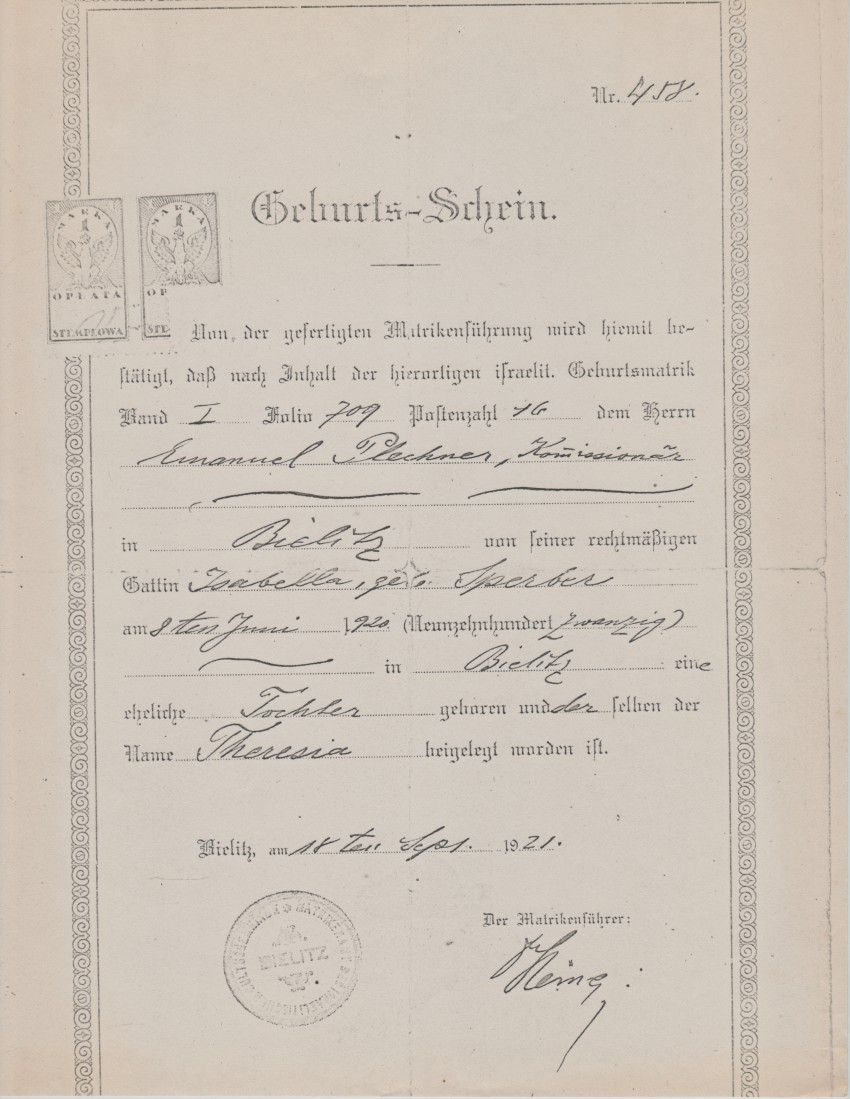 Nr. 458.
Geburts-Schein.
MARKA 1 MARKA 1
OPŁATA OP
STEMPLOWA STE
Von der gefertigten Matrikenführung wird hiemit be-
stätigt, daß nach Inhalt der hierortigen israelit. Geburtsmatrik
Band I Folio 709 Postenzahl 16 dem Herrn
Emanuel Plechner, Kom̄issionär
in Bielitz von seiner rechtmäßigen
Gattin Isabella, geb. Sperber
am 8ten Juni 1920 (Neunzehnhundert zwanzig)
in Bielitz eine
eheliche Tochter geboren und der selben der
Name Theresia beigelegt worden ist.
Bielitz, am 18ten Sept. 1921.
Der Matrikenführer:
BIELITZ